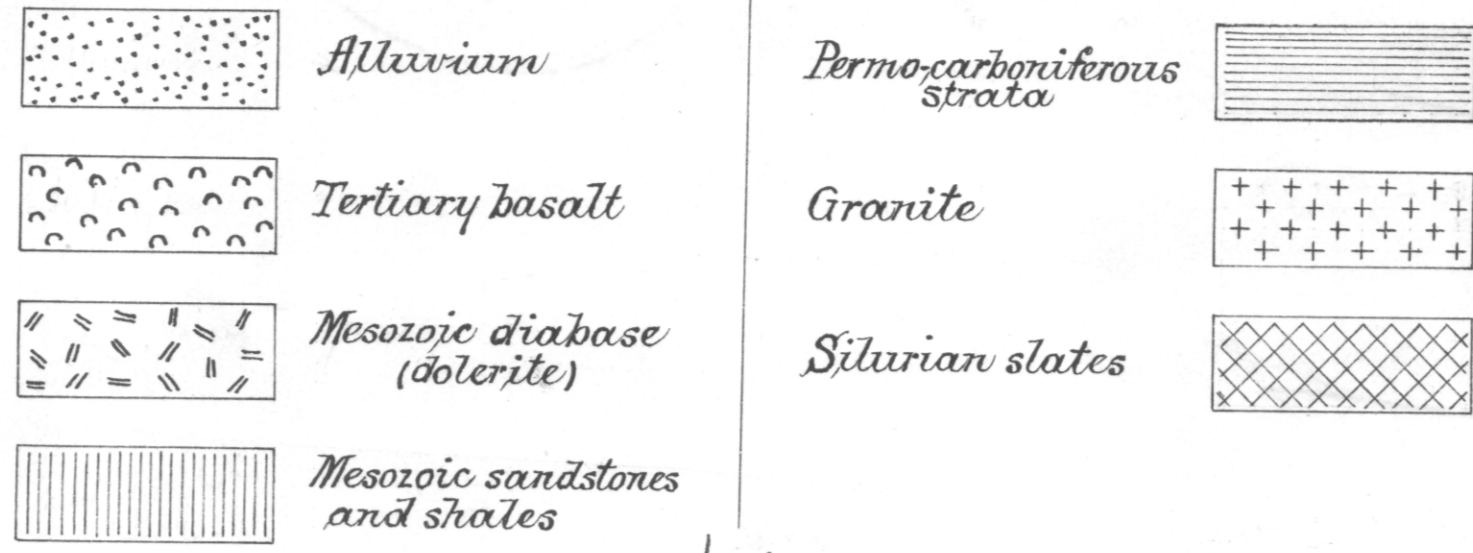 Alluvium
Tertiary basalt
Mesozoic diabase
(dolerite)
Mesozoic sandstones
and shales
Permo-carboniferous
strata
Granite
Silurian slates